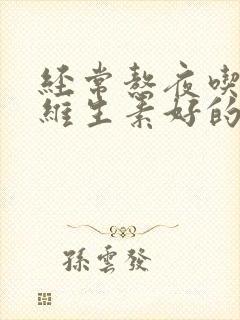 經常熬夜喫
維生素好的
孫雲發